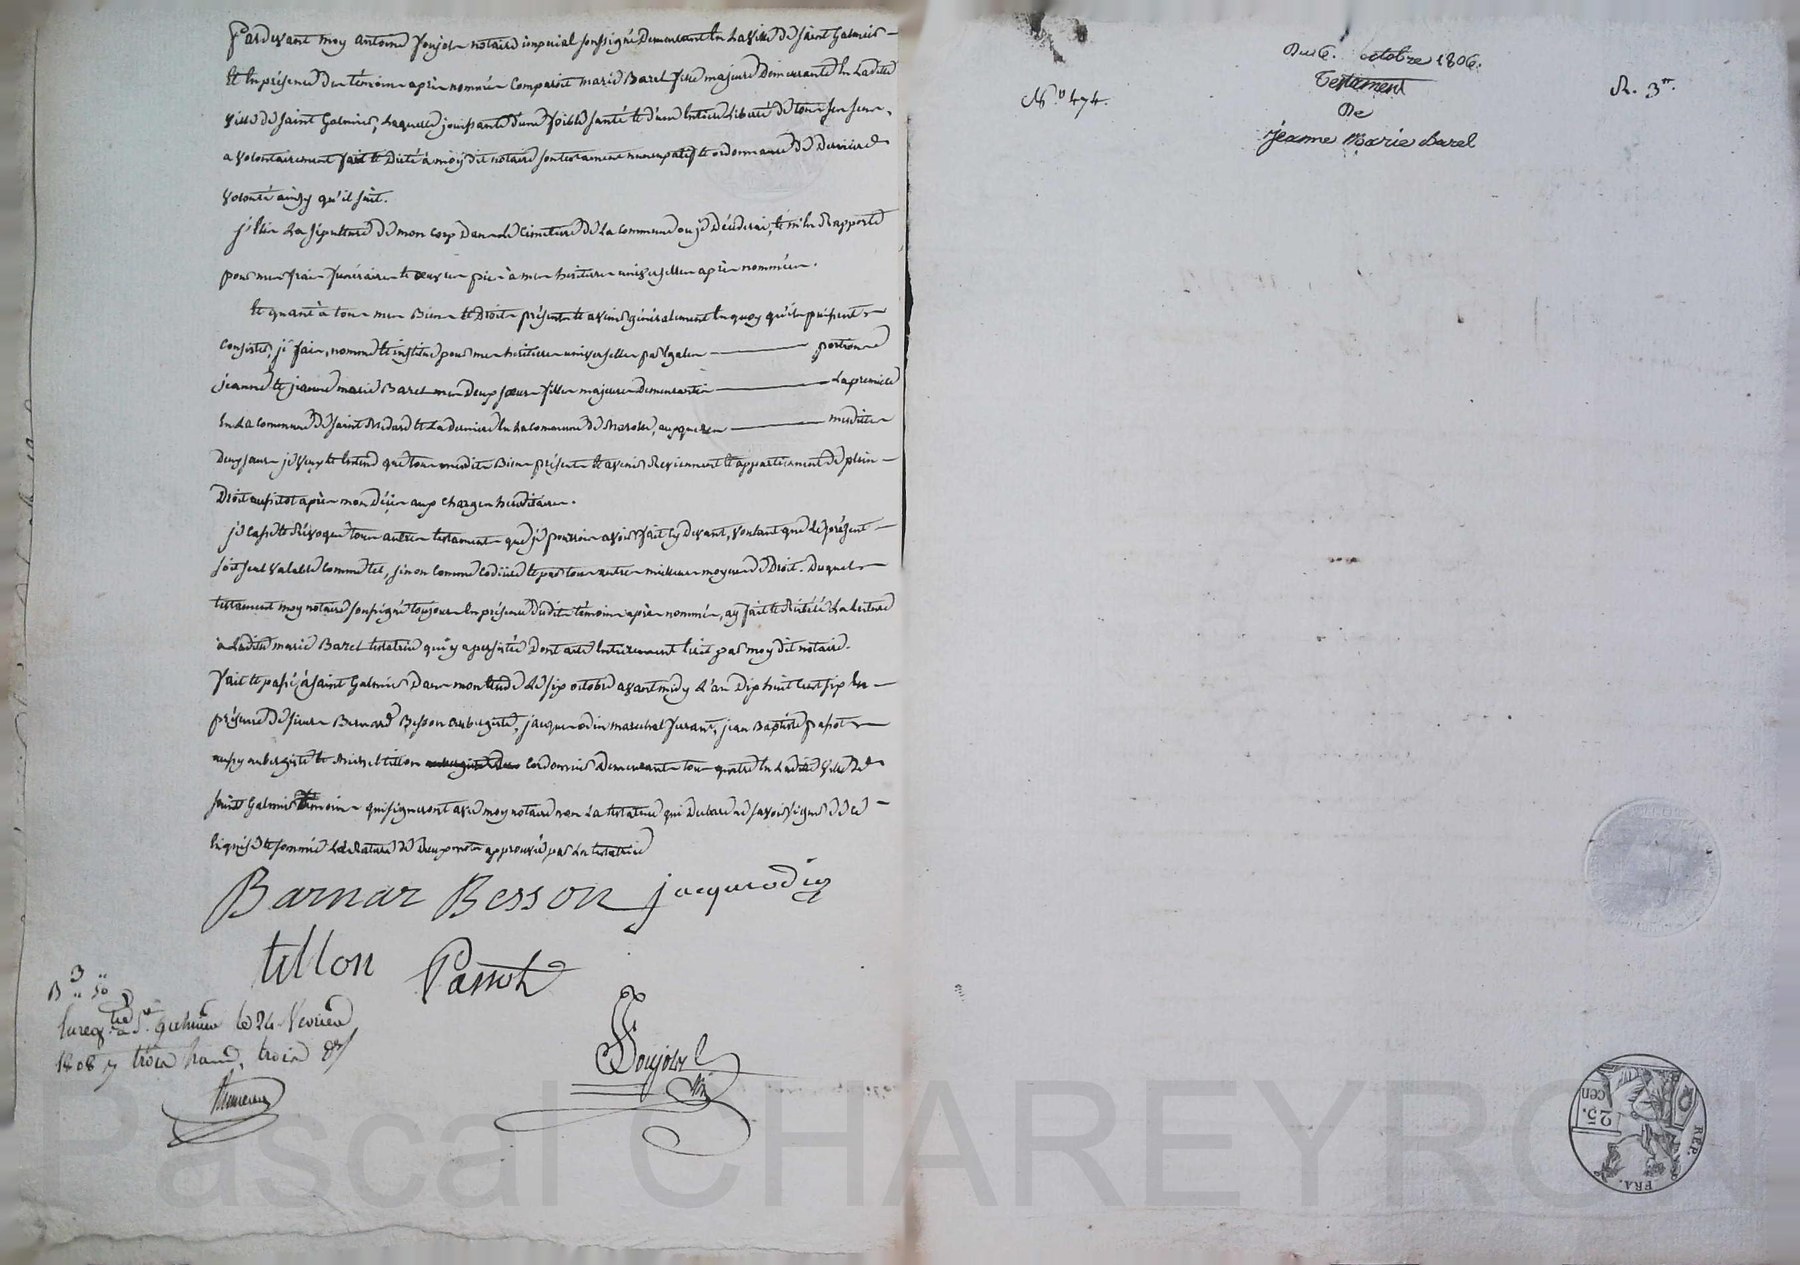 Pardevant moy antoine Poujols notaire imperial soussigné Demeurant En La ville de saint Galmier
et En présence des témoins après nommés comparoit marie Barel fille majeure Demeurante En Ladite
ville de saint Galmier, Laquelle jouissante d'une foible santé et d'une Entiere Liberté de tous ses sens,
a volontairement fait et Dicté à moy dit notaire son testament nuncupatif et ordonnance de Derniere
volonté ainsy qu'il suit.
j'Elis La sépulture de mon corp Dans Le Cimetiere de La Commune ou je Décéderai, et m'En Rapporte
pour mes frais funéraires et œuvres pies à mes heritieres universelles après nommées.
Et quant à tous mes Biens et Droits présents et avenir généralement En quoy qu'ils puissent
Consister, je fais, nomme et institue pour mes heritieres universelles par Egales portions
jeanne et jeanne marie Barel mes Deux sœurs filles majeures Demeurantes La premiere
En La Commune de saint Médard et La Derniere En La Commune de, auxquelles mesdites
Deux sœurs je veux et Entend que tous mesdits Biens présents et avenir Reviennent et appartiennent de plein
Droit aussitot après mon Décès aux charges héréditaires.
je Casse et Révoque tous autres testaments que je pourrois avoir fait Cy devant, voulant que Le présent
soit seul valable comme tel, sinon Comme Codicile et par tous autres meilleurs moyens de Droit. Duquel
testament moy notaire soussigné toujours En présence desdits témoins après nommés, ay fait et Réitéré La Lecture
à Ladite marie Barel testatrice qui y a persistée Dont acte Entierement Ecrit par moy dit notaire.
Fait et passé à saint Galmier Dans mon Etude Le six octobre avant midy L'an Dix huit Cent six En
présence de sieurs Bernard Besson aubergiste, jacques odin marechal ferant, jean Baptiste passot
aussy aubergiste et Michel tillon Cordonnier Demeurants tous quatre En Ladite ville de
saint Galmier témoins qui signeront avec moy notaire non La testatrice qui a Declaré ne savoir signer de ce
Enquise et sommée La Rature de Deux mots approuvée par La testatrice
Barnar Besson jacque odin
tillon Passot
Poujols
B 3 " 50
Enregtré à St. galmier le 24 fevrier
1808 Rx trois francs, trois
Du 6. octobre 1806.
Testament
De
Jeanne Marie Barel
N.° 474.
R. 3
25.
cen
REP.
FRA.
Pascal CHAREYRON